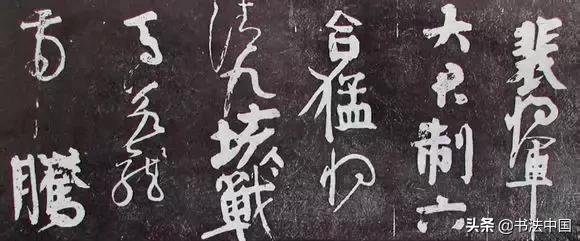 裴将軍
大君制六
合猛将
清九垓戰
馬若龍
虎騰
头条 @书法中国